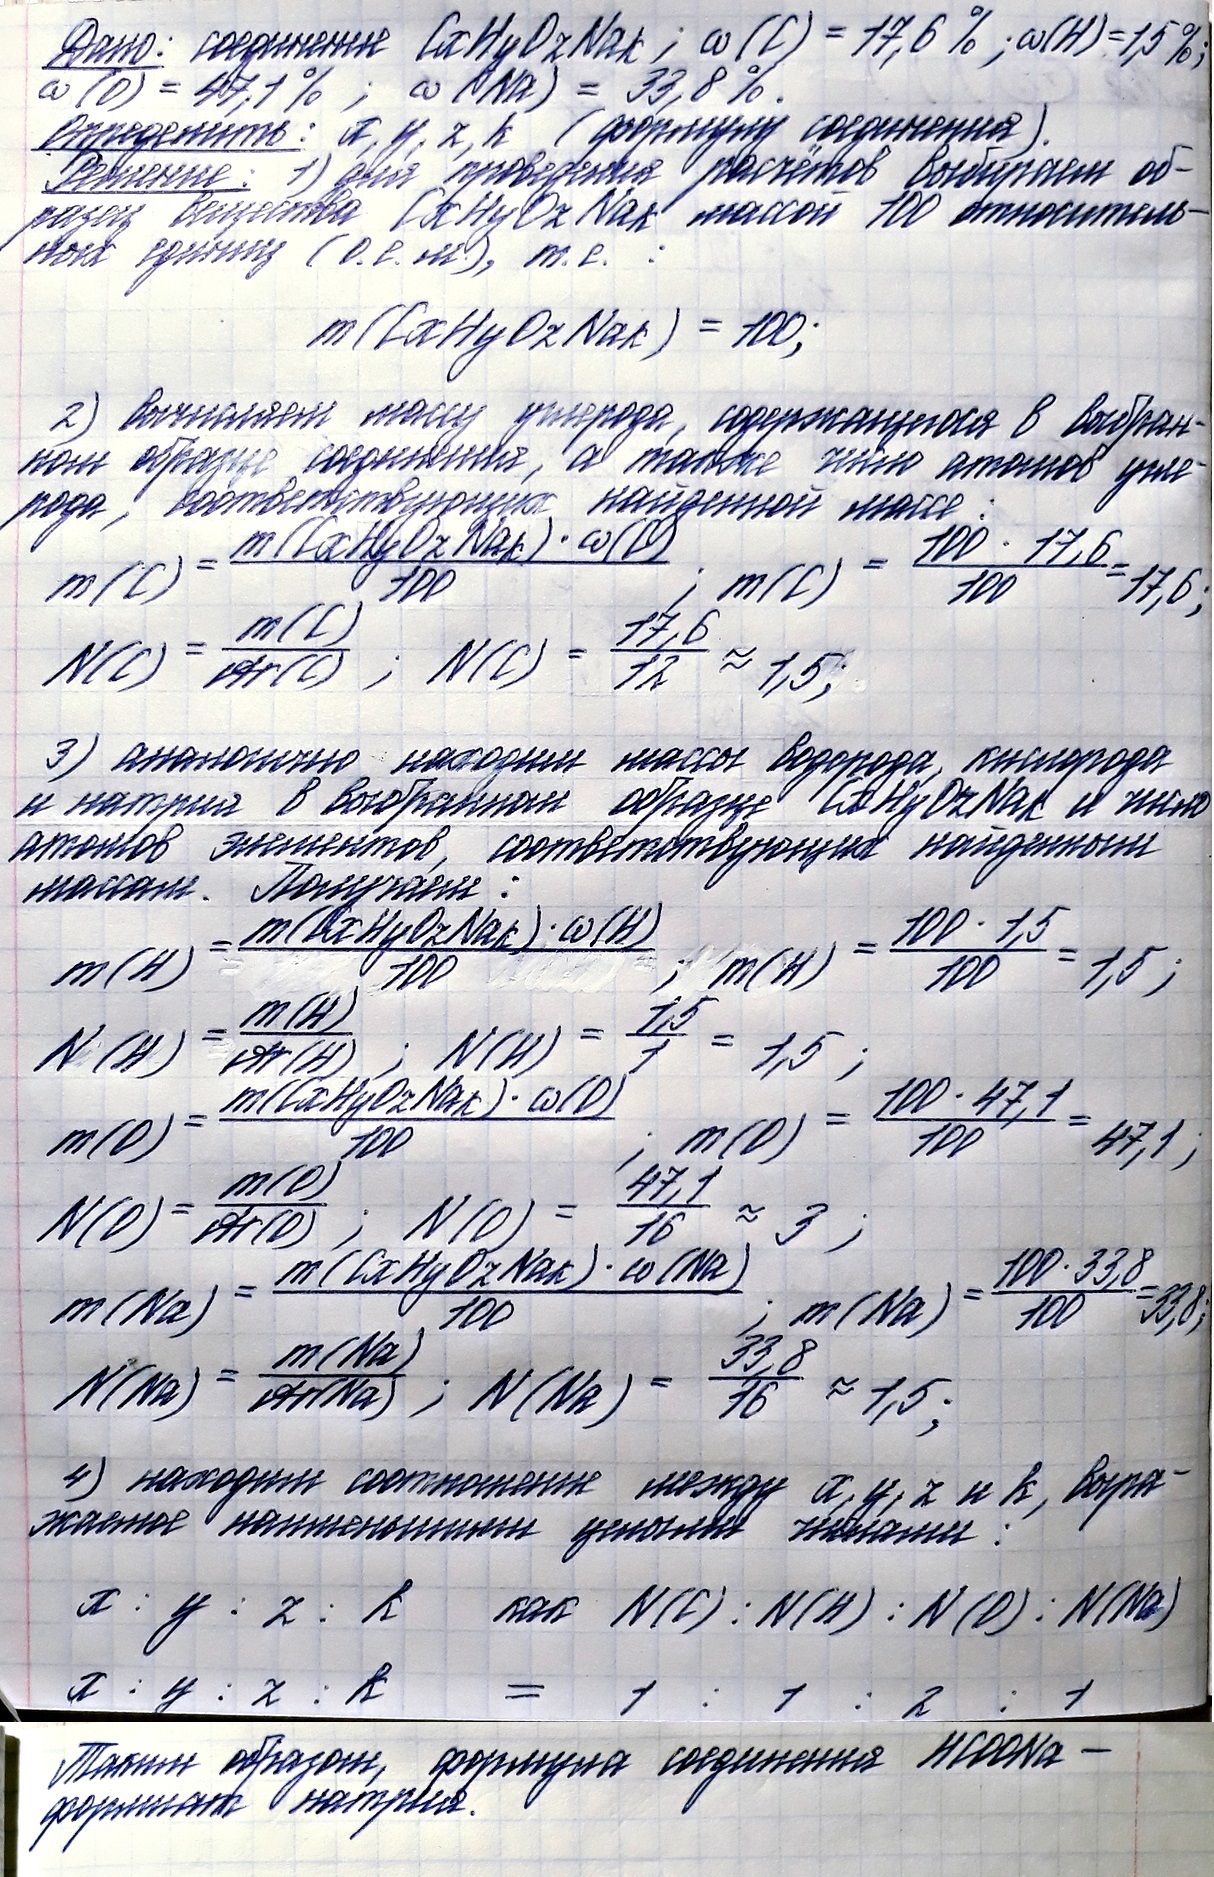 Дано: соединение CxHyOzNak; ω(C) = 17,6%; ω(H) = 1,5%;
ω(O) = 47,1%; ω(Na) = 33,8%.
Определить: x, y, z, k (формулу соединения).
Решение: 1) для проведения расчётов выбираем об-
разец вещества CxHyOzNak массой 100 относитель-
ных единиц (о.е.м), т.е. :
m(CxHyOzNak) = 100;
2) вычисляем массу углерода, содержащегося в выбран-
ном образце соединения, а также число атомов угле-
рода, соответствующих найденной массе:
m(C) = m(CxHyOzNak) · ω(C) / 100 ; m(C) = 100 · 17,6 / 100 = 17,6;
N(C) = m(C) / Ar(C) ; N(C) = 17,6 / 12 ≈ 1,5;
3) аналогично находим массы водорода, кислорода
и натрия в выбранном образце CxHyOzNak и число
атомов элементов, соответствующих найденным
массам. Получаем:
m(H) = m(CxHyOzNak) · ω(H) / 100 ; m(H) = 100 · 1,5 / 100 = 1,5;
N(H) = m(H) / Ar(H) ; N(H) = 1,5 / 1 = 1,5;
m(O) = m(CxHyOzNak) · ω(O) / 100 ; m(O) = 100 · 47,1 / 100 = 47,1;
N(O) = m(O) / Ar(O) ; N(O) = 47,1 / 16 ≈ 3;
m(Na) = m(CxHyOzNak) · ω(Na) / 100 ; m(Na) = 100 · 33,8 / 100 = 33,8;
N(Na) = m(Na) / Ar(Na) ; N(Na) = 33,8 / 16 ≈ 1,5;
4) находим соотношение между x, y, z и k, выра-
жаемое наименьшими целыми числами:
x : y : z : k как N(C) : N(H) : N(O) : N(Na)
x : y : z : k = 1 : 1 : 2 : 1
Таким образом, формула соединения HCOONa –
формиат натрия.